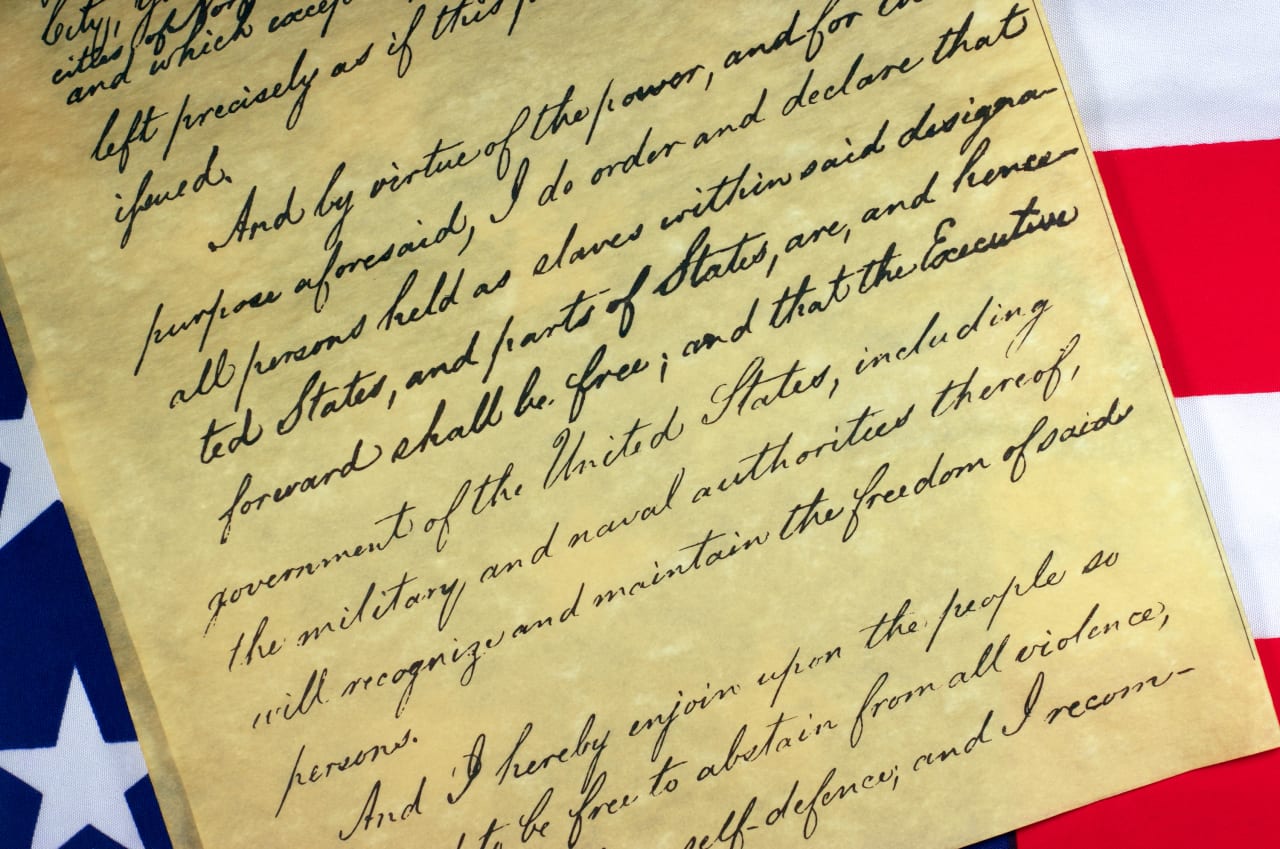 City,
cities of Nor
and which except
left precisely as if this p
issued.
And by virtue of the power, and for
purpose aforesaid, I do order and declare that
all persons held as slaves within said designa-
ted States, and parts of States, are, and hence-
forward shall be free; and that the Executive
government of the United States, including
the military and naval authorities thereof,
will recognize and maintain the freedom of said
persons.
And I hereby enjoin upon the people so
to be free to abstain from all violence,
self-defence; and I recom-